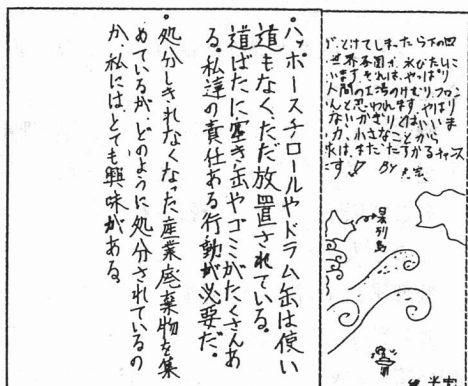 ・ハッポースチロールやドラム缶は使い
道もなく、ただ放置されている。
道ばたに空き缶やゴミがたくさんあ
る。私達の責任ある行動が必要だ。
・処分しきれなくなった産業廃棄物を集
めているが、どのように処分されているの
か、私には、とても興味がある。
が、とけてしまったら下の四
世界各国が、水びたしに
います。それは、やっぱり
人間の工場のけむり、フロン
んと思われます。やはり
ないかぎりとはいいま
力、小さなことから
球は、まだたすかるチャンス
です。
BY
列島